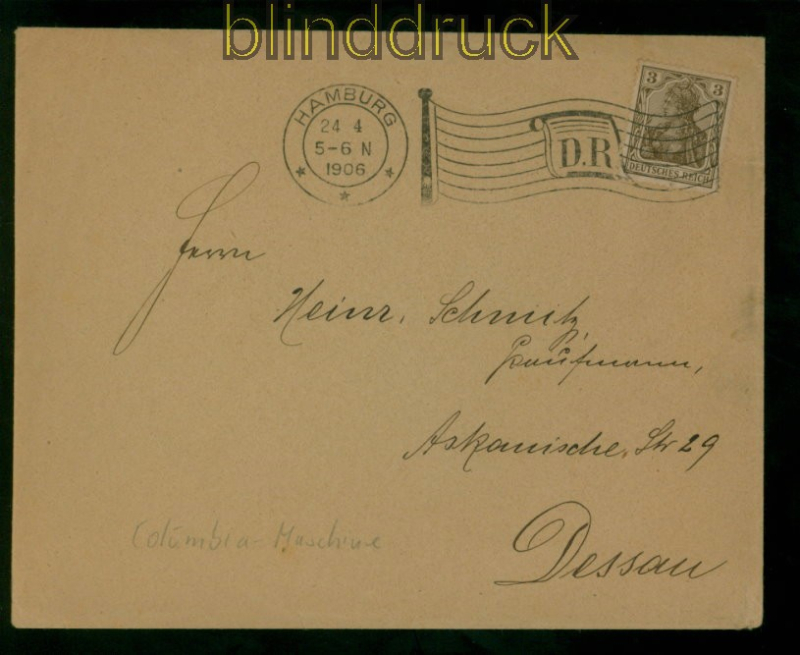 blinddruck
HAMBURG
24 4
5-6 N
1906
D.R
3 3
DEUTSCHES REICH
Herrn
Heinr. Schmitz,
Kaufmann,
Askanische. Str 29
Dessau
Columbia-Maschine